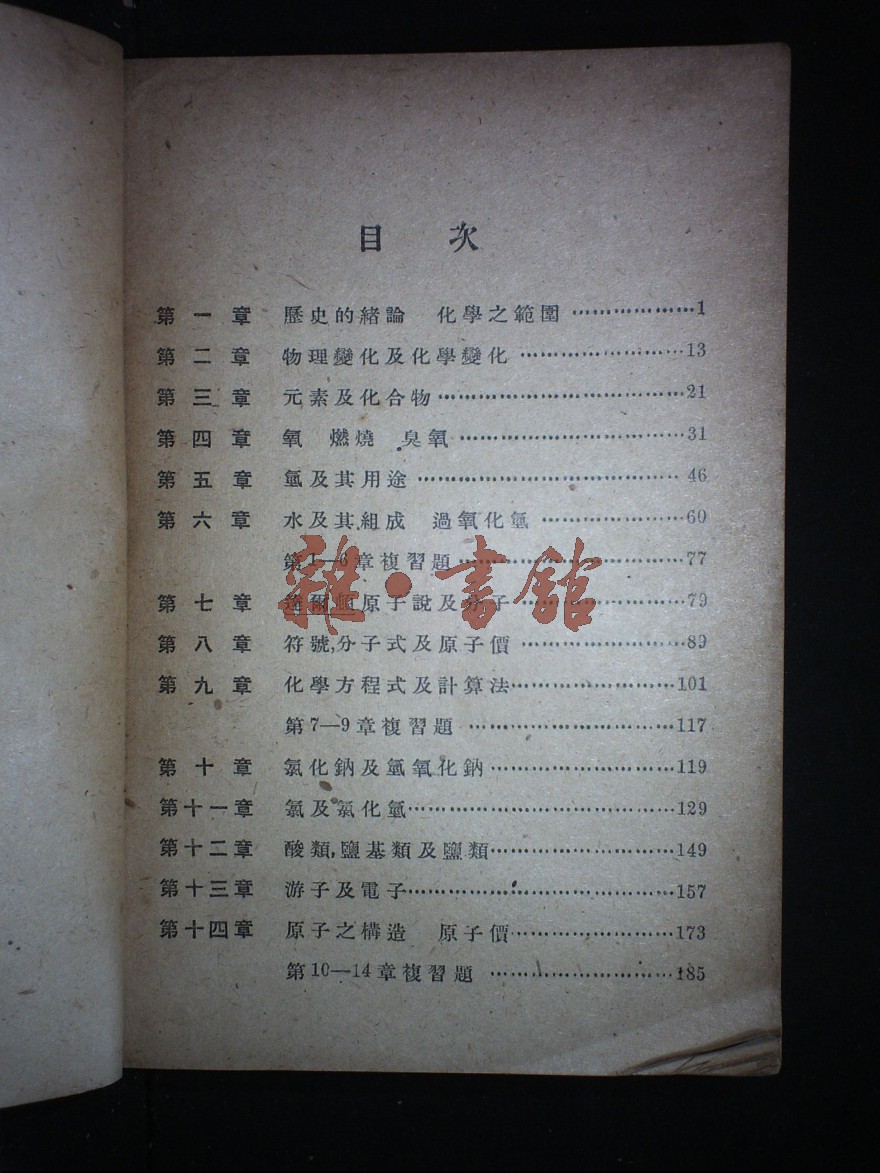 目 次
第一章 歷史的緒論 化學之範圍 …………………1
第二章 物理變化及化學變化 ………………………13
第三章 元素及化合物 ………………………………21
第四章 氧 燃燒 臭氧 ………………………………31
第五章 氫及其用途 …………………………………46
第六章 水及其組成 過氧化氫 ……………………60
第1—6章複習題 ……………………………………77
第七章 達爾頓原子說及分子 ………………………79
第八章 符號,分子式及原子價 ……………………89
第九章 化學方程式及計算法 ………………………101
第7—9章複習題 ……………………………………117
第十章 氯化鈉及氫氧化鈉 …………………………119
第十一章 氯及氯化氫 ………………………………129
第十二章 酸類,鹽基類及鹽類 ……………………149
第十三章 游子及電子 ………………………………157
第十四章 原子之構造 原子價 ……………………173
第10—14章複習題 …………………………………185
雜·書館